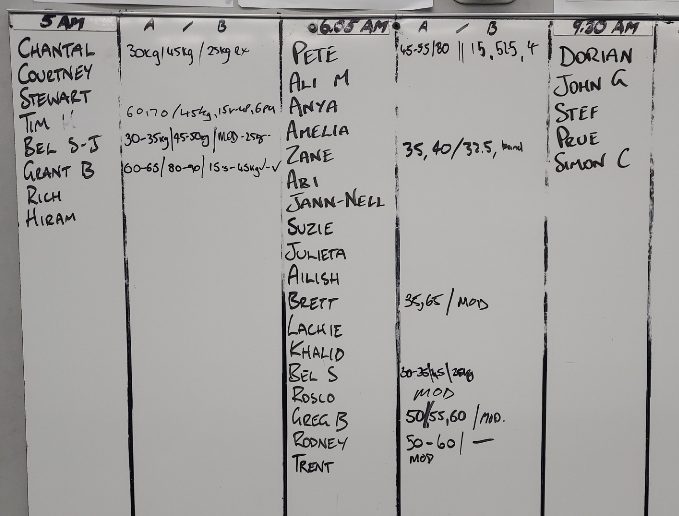 5 AM A / B
CHANTAL 30kg/45kg / 25kg ex
COURTNEY
STEWART
TIM 60,70 / 45kg,
BEL S-J 30-35kg/45-50kg/MOD-25kg
GRANT B 60-65/80-90/
RICH
HIRAM
6.05 AM A / B
PETE 45-55/80 || 15, 4
ALI M
ANYA
AMELIA
ZANE 35, 40/32.5, band
ABI
JANN-NELL
SUZIE
JULIETA
AILISH
BRETT 35,65 / MOD
LACHIE
KHALID
BEL S 30-35/45/25kg
ROSCO MOD
GREG B 50/55,60 / MOD.
RODNEY 50-60/ —
TRENT MOD
9:30 AM
DORIAN
JOHN G
STEF
PRUE
SIMON C